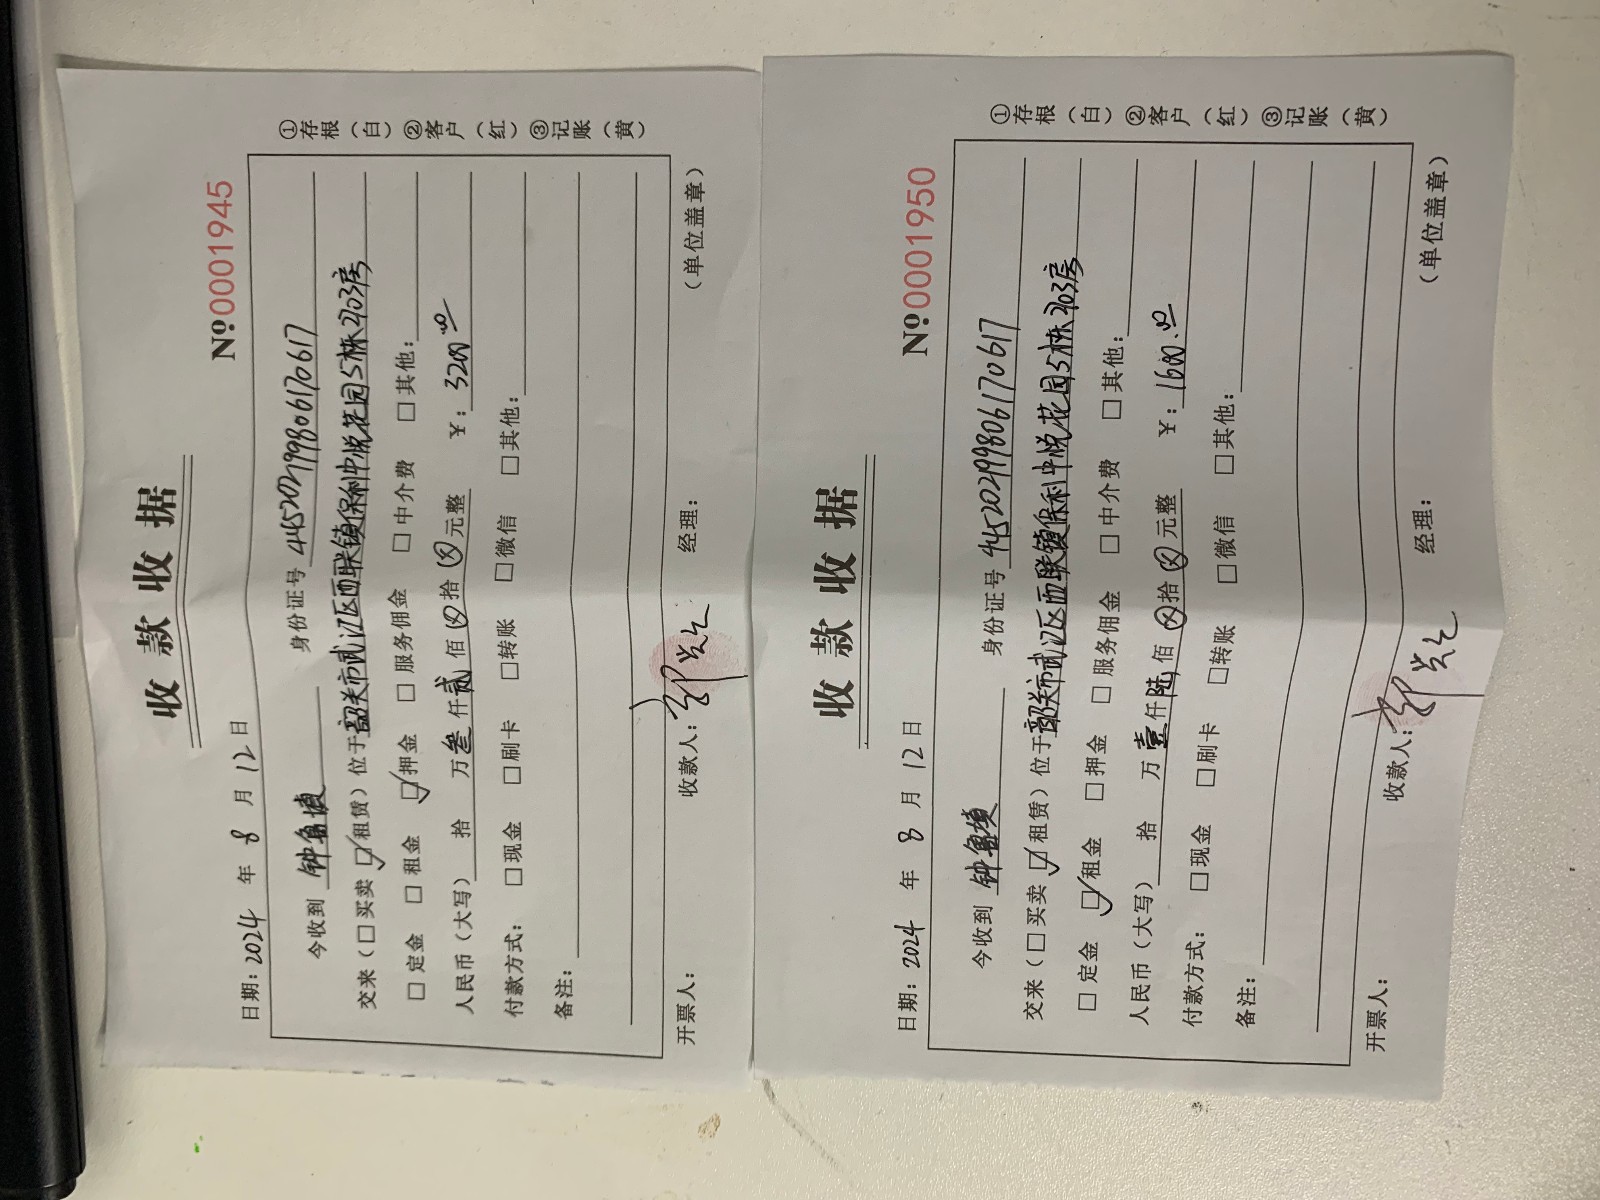 收款收据
№0001945
日期：2024 年 8 月 12 日
今收到 钟 身份证号 445202199806170617
交来（□买卖 ☑租赁）位于韶关市武江区西联镇保利中悦花园5栋2703房
□定金 □租金 ☑押金 □服务佣金 □中介费 □其他：
人民币（大写） 拾 万叁仟贰佰⊗拾⊗元整 ￥：3200.00
付款方式： □现金 □刷卡 □转账 □微信 □其他：
备注：
开票人： 收款人： 经理： （单位盖章）
①存根（白）②客户（红）③记账（黄）
收款收据
№0001950
日期：2024 年 8 月 12 日
今收到 钟 身份证号 445202199806170617
交来（□买卖 ☑租赁）位于韶关市武江区西联镇保利中悦花园5栋2703房
□定金 ☑租金 □押金 □服务佣金 □中介费 □其他：
人民币（大写） 拾 万壹仟陆佰⊗拾⊗元整 ￥：1600.00
付款方式： □现金 □刷卡 □转账 □微信 □其他：
备注：
开票人： 收款人： 经理： （单位盖章）
①存根（白）②客户（红）③记账（黄）